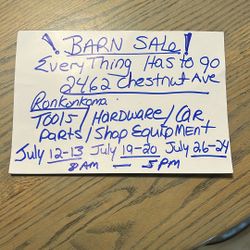 ! BARN SALE !
EveryThing Has to go
2462 Chestnut Ave
Ronkonkoma
TOOLS / HARDWARE / CAR
PARTS / Shop EquipMENT
July 12-13 July 19-20 July 26-27
8AM — 5PM